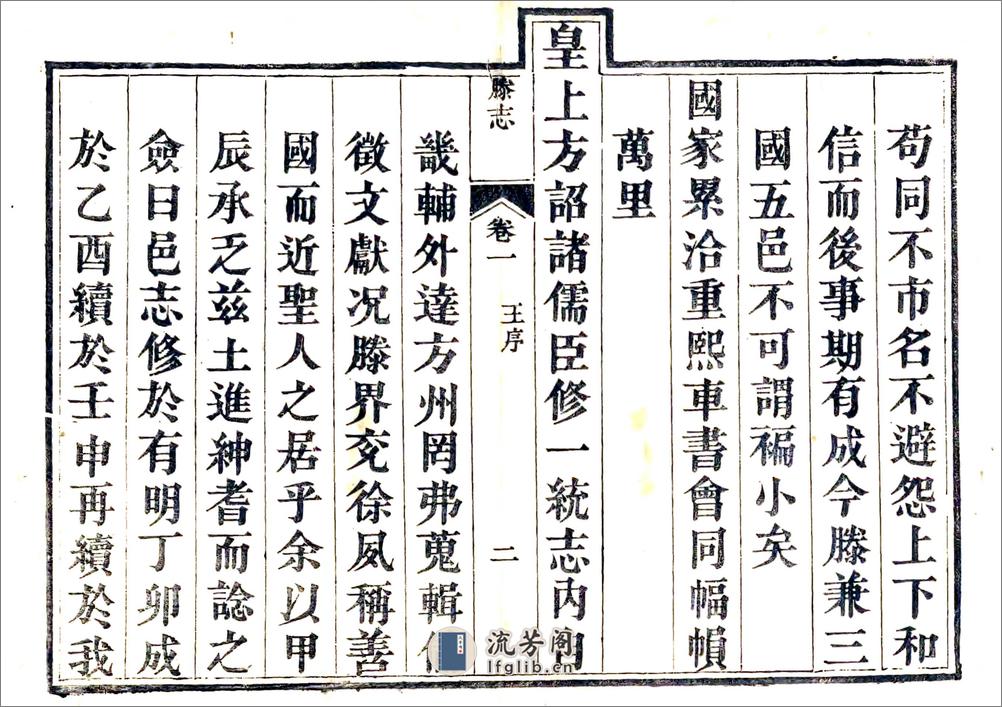 苟同不市名不避怨上下和
信而後事期有成今滕兼三
國五邑不可謂褊小矣
國家累洽重熙車書會同幅幀
萬里
皇上方詔諸儒臣修一統志內由
滕志
卷一
王序
二
畿輔外達方州罔弗蒐輯
徵文獻况滕界兖徐夙稱善
國而近聖人之居乎余以甲
辰承乏兹土進紳耆而諗之
僉曰邑志修於有明丁卯成
於乙酉續於壬申再續於我
流芳阁
lfglib.cn